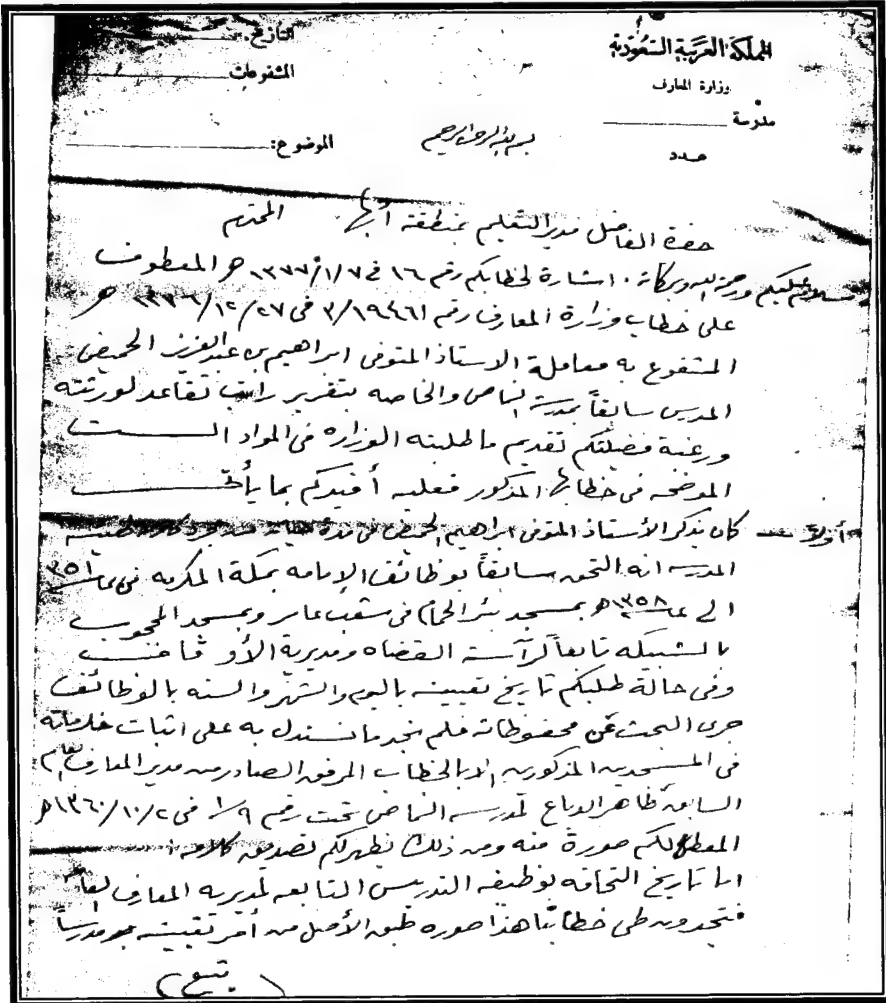 المملكة العربية السعودية
وزارة المعارف
مدرسة
عدد
التاريخ
المشفوعات
الموضوع:
بسم الله الرحمن الرحيم
حضرة الفاضل مدير التعليم بمنطقة أبها المحترم
سلام عليكم ورحمة الله وبركاته. اشارة لخطابكم رقم ١٦ في ١٣٧٧/١/٧ هـ المعطوف
على خطاب وزارة المعارف رقم ٣/١٩٤٦١ في ١٣٧٦/١٢/٢٧ هـ
المشفوع به معاملة الاستاذ المتوفى ابراهيم بن عبد العزيز الحميضي
المدرس سابقاً بمدرسة النماص والخاصه بتقرير راتب تقاعد لورثته
ورغبة فضيلتكم تقديم ما طلبته الوزاره في المواد الست
الموضحه في خطابها المذكور فعليه أفيدكم بما يأتي
أولاً - كان يذكر الأستاذ المتوفى ابراهيم الحميضي في مدة حياته
المدرسه انه التحق سابقاً بوظائف الإمامه بمكة المكرمه في عام ١٣٥١
الى عام ١٣٥٨هـ بمسجد بئر الحمام في شعب عامر وبمسجد المحجوب
بالشبيكه تابعاً لرآسة القضاه ومديرية الأوقاف
وفي حالة طلبكم تاريخ تعيينه باليوم والشهر والسنه بالوظائف
جرى البحث عن محفوظاته فلم نجد ما نستدل به على اثبات خدماته
في المسجدين المذكورين الا بالخطاب المرفق الصادر من مدير المعارف العام
السابق طاهر الدباغ لمدرسة النماص تحت رقم ١/٩ في ١٣٦٠/١٠/٢هـ
المعطى لكم صورة منه ومن ذلك يظهر لكم تصديق كلامه
اما تاريخ التحاقه بوظيفة التدريس التابعه لمديرية المعارف العامه
فتجدون طي خطابنا هذا صوره طبق الأصل من أمر تعيينه مدرساً
(يتبع)